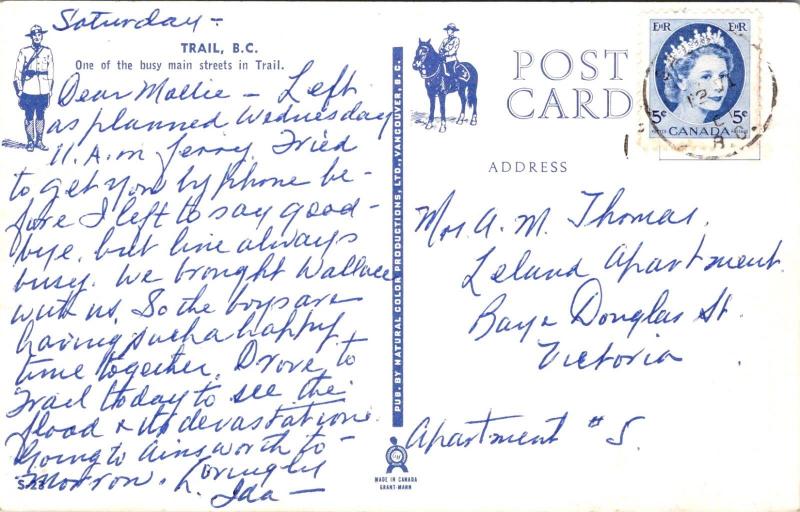 Saturday -
TRAIL, B.C.
One of the busy main streets in Trail.
Dear Mollie - Left
as planned Wednesday
11. A.m ferry. Tried
to get you by phone be-
fore I left to say good-
bye, but line always
busy. We brought Wallace
with us. So the boys are
having such a happy
time together. Drove to
Trail today to see the
flood & its devastation.
Going to Ainsworth to-
morrow. Lovingly
Ida -
S-28
PUB. BY NATURAL COLOR PRODUCTIONS, LTD., VANCOUVER, B.C.
MADE IN CANADA
GRANT-MANN
POST
CARD
ADDRESS
EIIR EIIR
5c 5c
POSTES POSTAGE
CANADA
Mrs. A. M. Thomas,
Leland Apartment.
Bay & Douglas St.
Victoria
Apartment # 5.